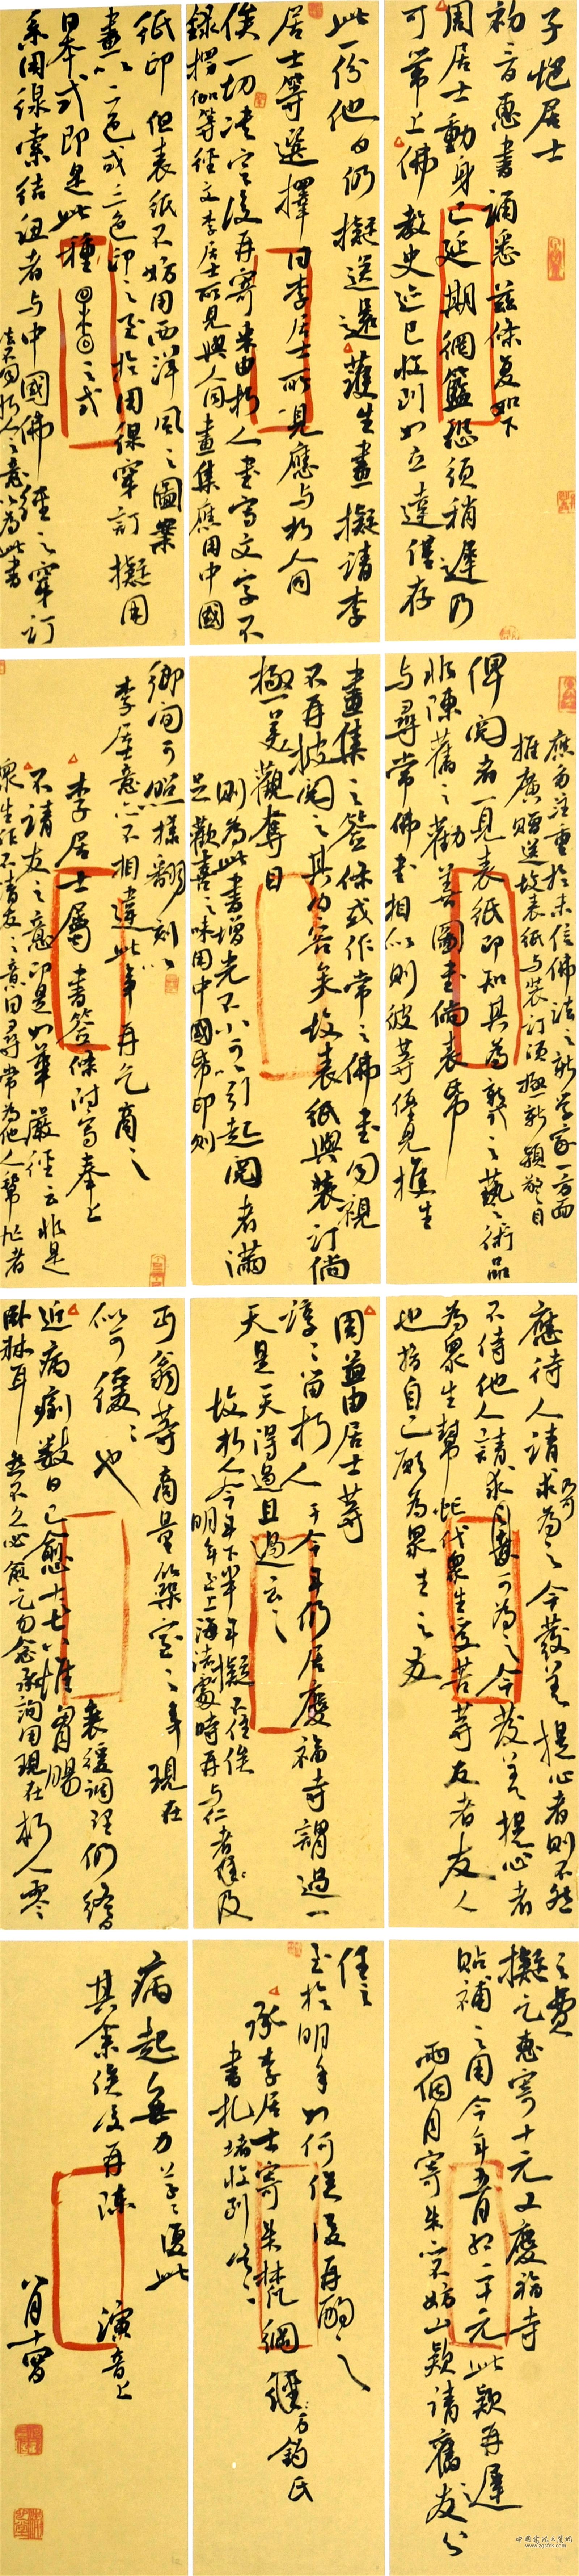 子愷居士
初三日惠書誦悉茲條复如下
周居士動身已延期網籃恐須稍遲乃
可帶上佛教史迹已收到如立達僅存
此一份他日仍擬送還護生畫擬請李
居士等選擇因李居士所見應与朽人同
俟一切決定後再寄來由朽人書寫文字不
録楞伽等經文李居士所見與人同畫集應用中國
紙印但表紙不妨用西洋風之圖案
畫以二色或三色印之至於用線穿訂擬用
日本式即是此種之式
系用線索結紐者与中國佛經之穿訂
法不同朽人之意以為此書
應多注重於未信佛法之新学家一方面
推廣贈送故表紙与裝訂須極新穎奪目
俾閱者一見表紙即知其為新之藝術品
非陳舊之勸善圖画倘表紙
与尋常佛書相似則彼等僅見
畫集之签條或作常之佛画同視
不再披閱之其内容矣故表紙與裝訂倘
極美觀奪目
則為此書增光不小可以引起閱者滿
足歡喜之味用中國紙印則
鄉間可照樣翻刻似
李居意亦不相違此事再乞商之
李居士屬書签條附寫奉上
不請友之意即是如華嚴經云非是
衆生作不請友之意因尋常為他人幫忙者
應待人請求乃可為之今發菩提心者則不然
不待他人請求自動可為之今發菩提心者
為衆生幫忙代衆生受苦等友者友人
也指自己願為衆生之友
周益由居士等
諄諄留朽人于今年仍居慶福寺謂過一
天是一天得過且過云云
故朽人今年下半年擬不往俟
明年至上海法處時再与仁者談及
丏翁等商量築室之事現在
似可緩緩也
近病痢數日已愈十七八惟胃腸
衰緩調理仍綣
臥牀耳然不久必愈乞勿念承詢用現在朽人零
之費
擬乞惠寄十元又慶福寺
貼補之用今年五百起二十元此款再遲
兩個月寄来亦妨此款請舊友分
任之
至於明年如何俟後再酌之
承李居士寄来梵網經
書札堵收到
病起無力草草复此
其余俟後再陳
演音上
八月十四日
中国书法人才网
www.zgsfds.com